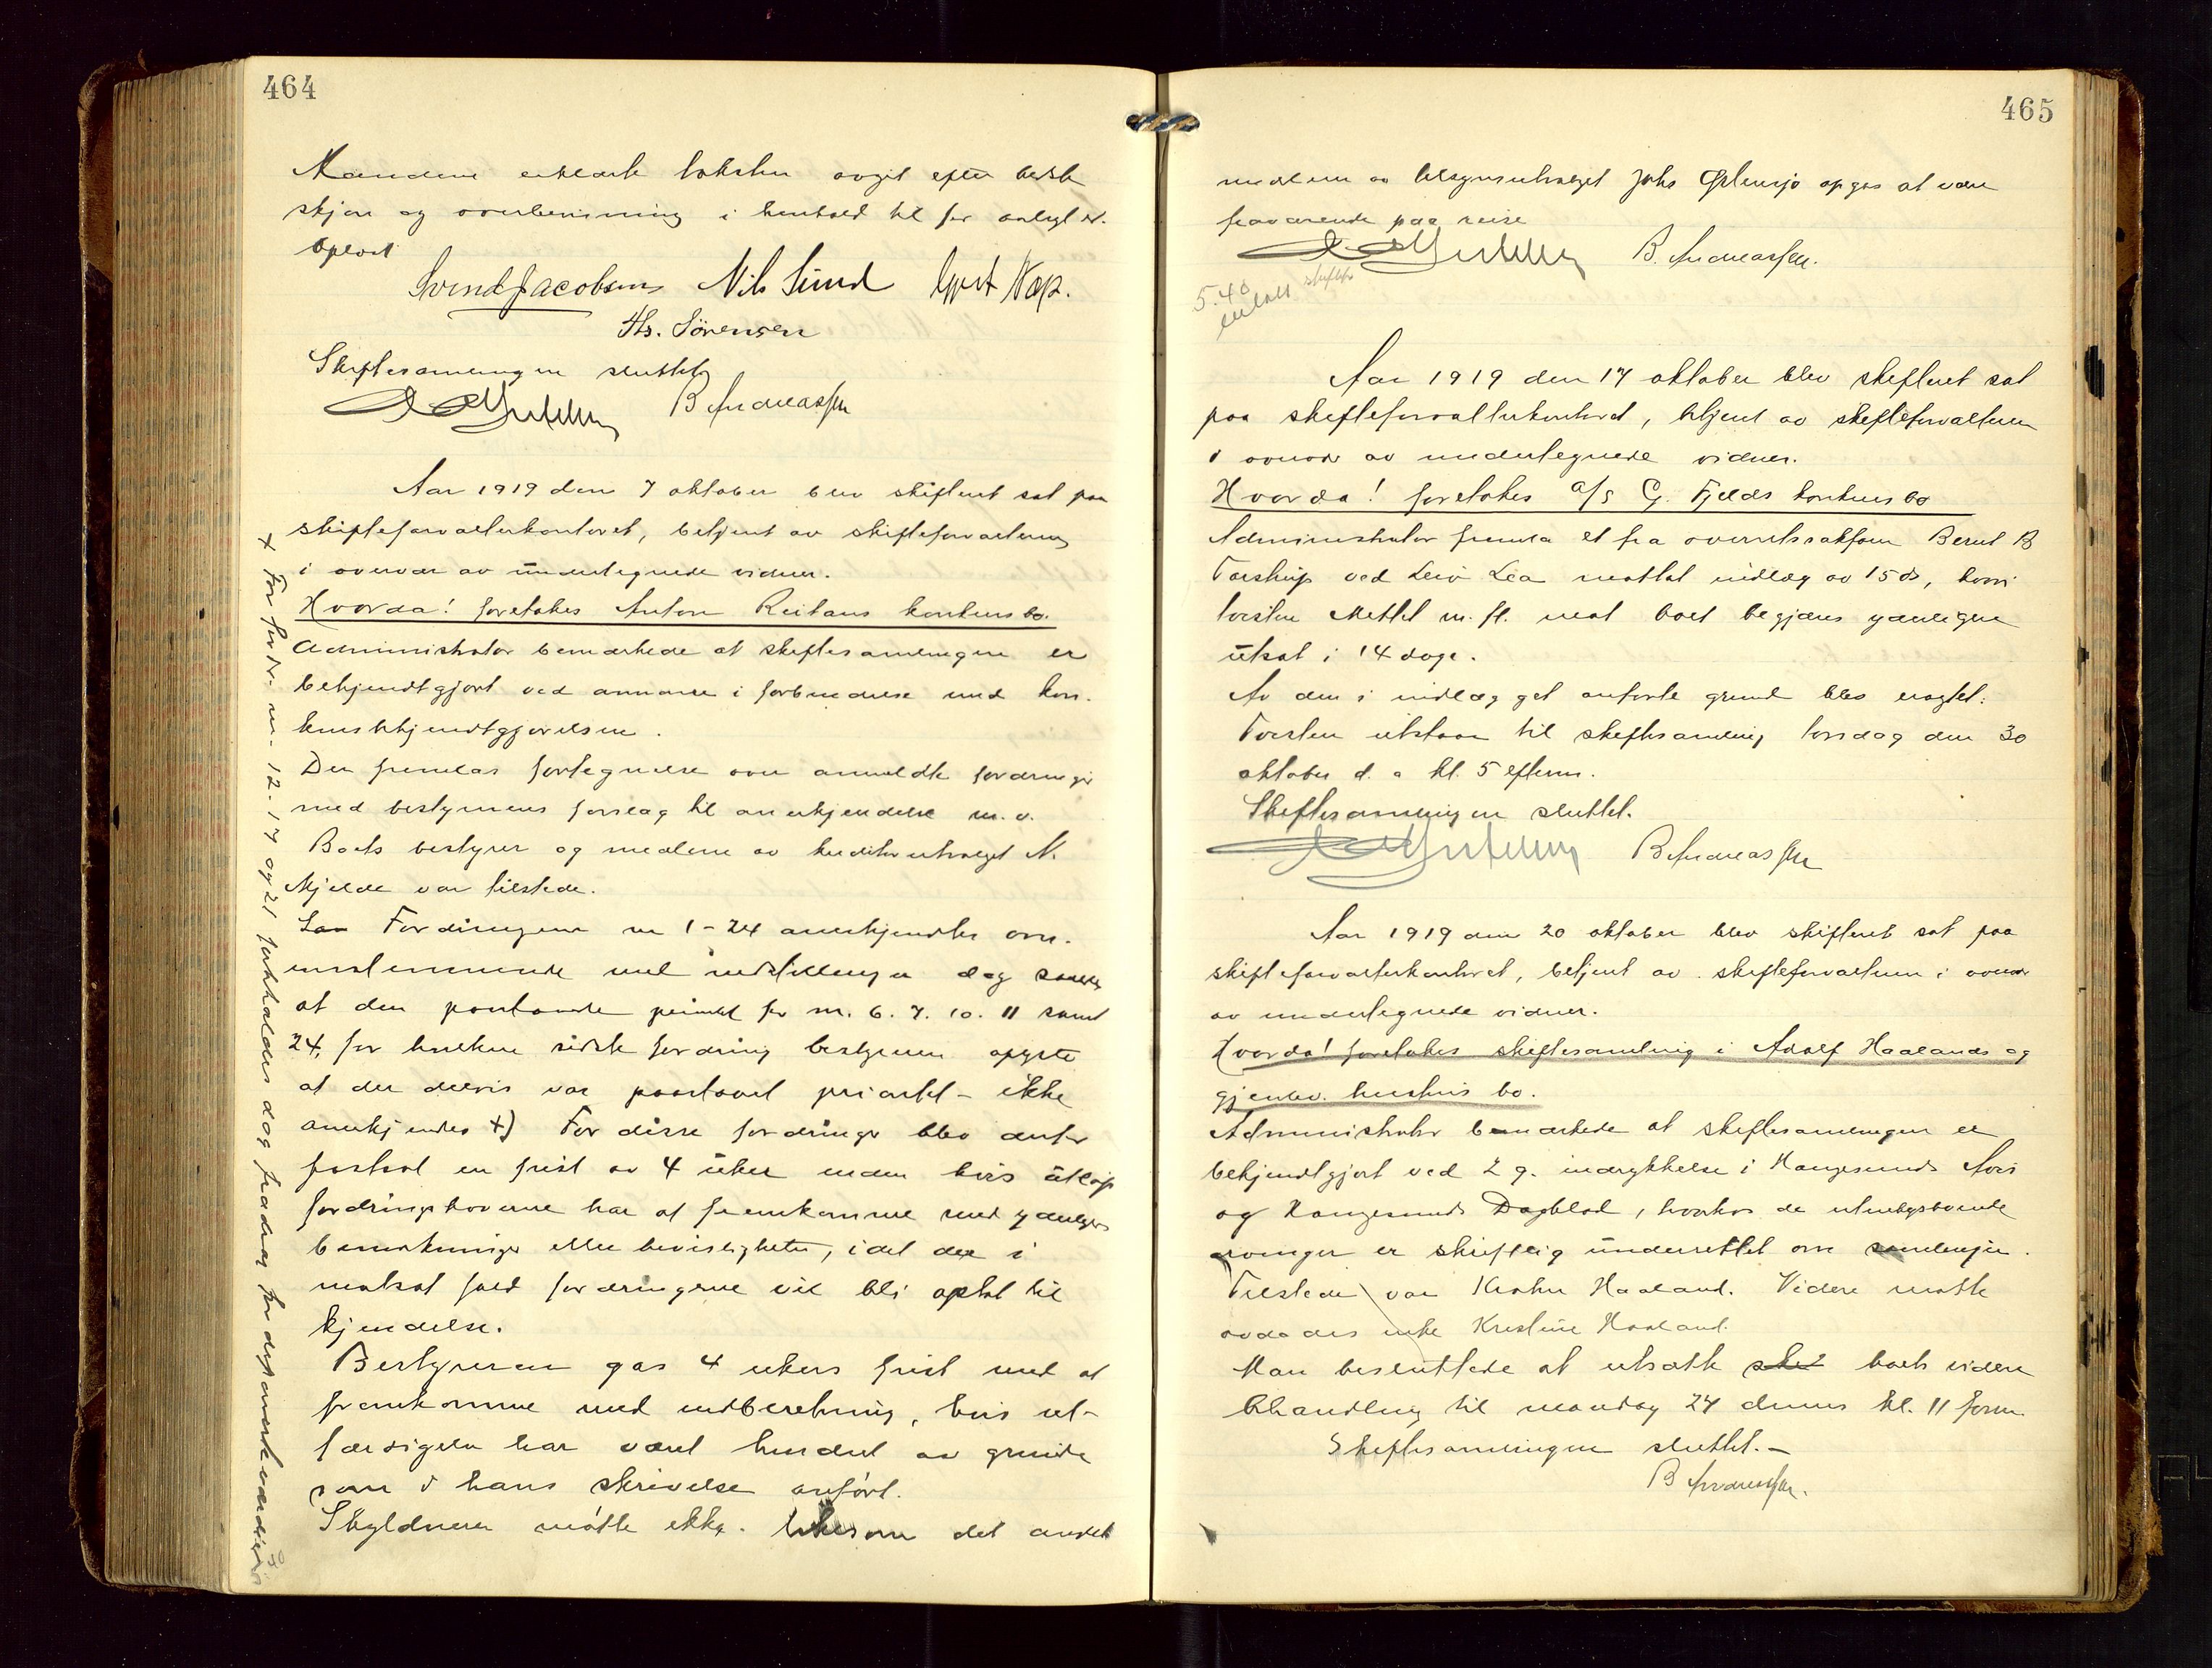 464
Mændene erklærte taksten avgit efter bedste
skjøn og overbevisning i henhold til før avlagt ed.
Oplæst
Svend Jacobsen Nils Sund Gert Næs.
Ths. Sørensen
Skiftesamlingen sluttet
B Andreassen
Aar 1919 den 7 oktober blev skifteret sat paa
skifteforvalterkontoret, betjent av skifteforvalteren
i overvær av undertegnede vidner.
Hvorda! foretokes Anton Reitans konkursbo.
Administrator bemærkede at skiftesamlingen er
bekjendtgjort ved annonce i forbindelse med kon-
kursbekjendtgjørelsen.
Der fremlas fortegnelse over anmeldte fordringer
med bestyrerens forslag til anerkjendelse m.v.
Boets bestyrer og medlem av kreditorutvalget N.
Mjelde var tilstede.
Fordringene nr 1-24 anerkjendtes over-
ensstemmende med indstillingen dog saaledes
at den paastaaede prioritet for nr. 6. 7. 10. 11 samt
24, for hvilken sidste fordring bestyreren oplyste
at der delvis var paastaaet prioritet - ikke
anerkjendes +) For disse fordringer blev derfor
fastsat en frist av 4 uker inden hvis utløp
fordringshaverne har at fremkomme med yderligere
bemerkninger eller bevisligheter, idet der i
motsat fald fordringerne vil bli optat til
kjendelse.
Bestyreren gas 4 ukers frist med at
fremkomme med indberetning, hvis ut-
færdigelse har været hindret av grunde
som i hans skrivelse anført.
Skyldneren møtte ikke. likesom det andet
+ For fordr. nr. 12. 17 og 21 forholdes dog fradrag for
465
medlem av tilsynsutvalget Johs Østensjø opgas at være
fraværende paa reise
B. Andreassen.
5.40
Aar 1919 den 17 oktober blev skifteret sat
paa skifteforvalterkontoret, betjent av skifteforvalteren
i overvær av undertegnede vidner.
Hvorda! foretokes A/S G. Fjelds konkursbo
Administrator fremla et fra overretssakfører Bernt B
Tarstrup ved Leiv Lea mottat indlæg av 15 ds, hvori
tvisten Mettel m. fl. mot boet begjæres yderligere
utsat i 14 dage.
Av den i indlægget anførte grund blev eragtet:
Tvisten utstaar til skiftesamling torsdag den 30
oktober d. a kl. 5 efterm.
Skiftesamlingen sluttet.
B Andreassen
Aar 1919 den 20 oktober blev skifteret sat paa
skifteforvalterkontoret, betjent av skifteforvalteren i overvær
av undertegnede vidner.
Hvorda! foretokes skiftesamling i Adolf Haalands og
gjenlev. hustrus bo.
Administrator bemærkede at skiftesamlingen er
bekjendtgjort ved 2 g. indrykkelse i Haugesunds Avis
og Haugesunds Dagblad, hvorhos de utenbysboende
arvinger er skriftlig underrettet om samlingen.
Tilstede var Krohn Haaland. Videre møtte
avdødes enke Kristine Haaland.
Man besluttede at utsætte boets videre
behandling til mandag 27 dennes kl. 11 form.
Skiftesamlingen sluttet.-
B Andreassen.